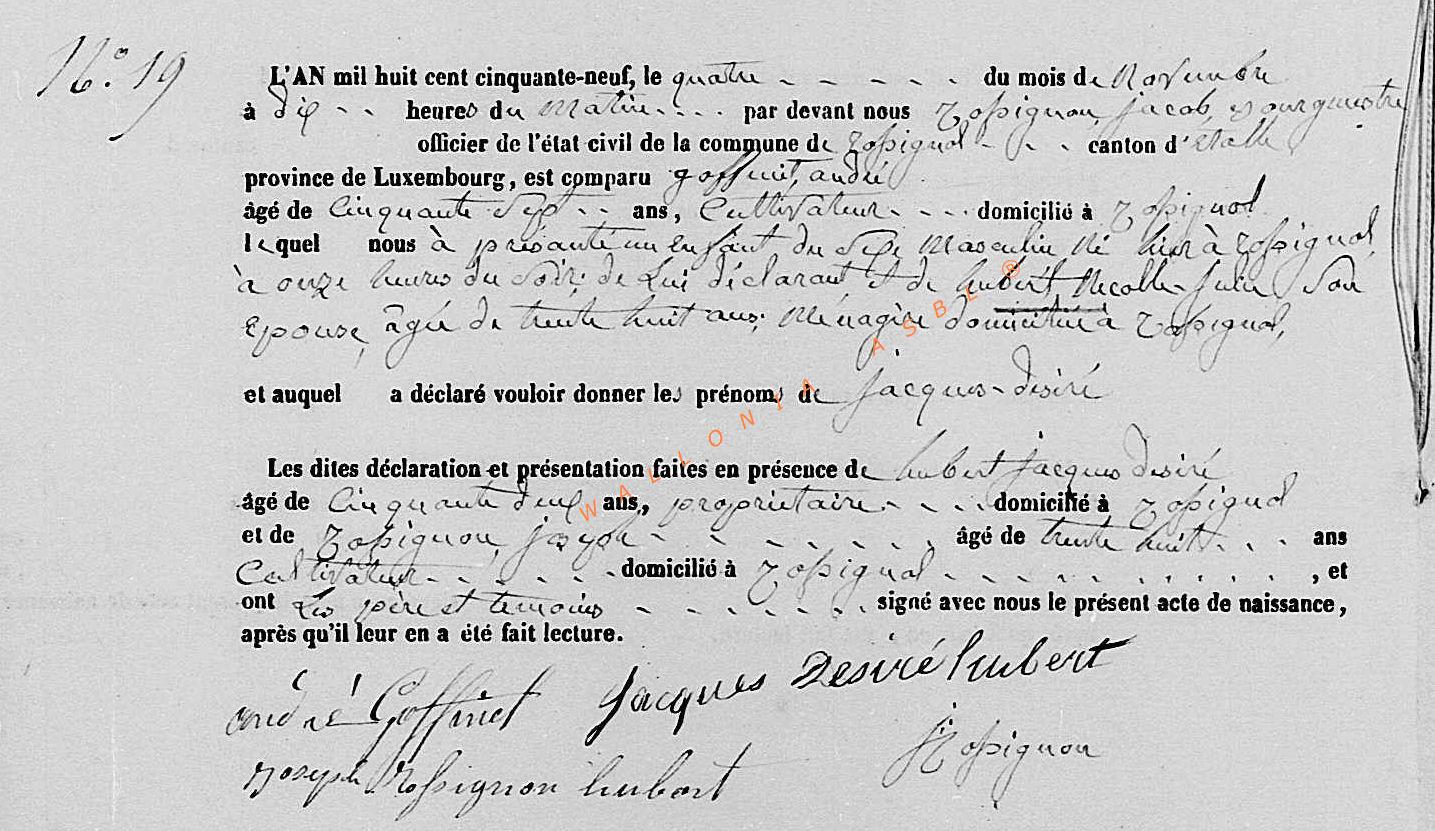 N.° 19
L'AN mil huit cent cinquante-neuf, le quatre - - - - - du mois de Novembre
à dix - - heures du matin - - - - par devant nous Rossignon, jacob, Bourgmestre
officier de l'état civil de la commune de Rossignol - - - canton d'Etalle
province de Luxembourg, est comparu goffinet, andré
âgé de Cinquante Sept - - ans, Cultivateur - - - - domicilié à Rossignol
lequel nous à présanté un enfant du Sexe Masculin Né hier à Rossignol,
à onze heures du Soir; de Lui déclarant et de hubert Julie Son
Epouse, âgée de trente huit ans; Ménagère domiciliée à Rossignol,
et auquel a déclaré vouloir donner les prénoms de Jacques-desiré
Les dites déclaration et présentation faites en présence de hubert Jacques desiré
âgé de Cinquante deux ans, propriétaire - - - - domicilié à Rossignol
et de Rossignon, - - - - - - - - âgé de trente huit - - - ans
Cultivateur - - - - - - domicilié à Rossignol - - - - - - - - - - - , et
ont Les père et temoins - - - - - - - signé avec nous le présent acte de naissance,
après qu'il leur en a été fait lecture.
andré Goffinet Jacques Desiré hubert
Joseph Rossignon hubert
J Rossignon
WALLONIA ASBL ®